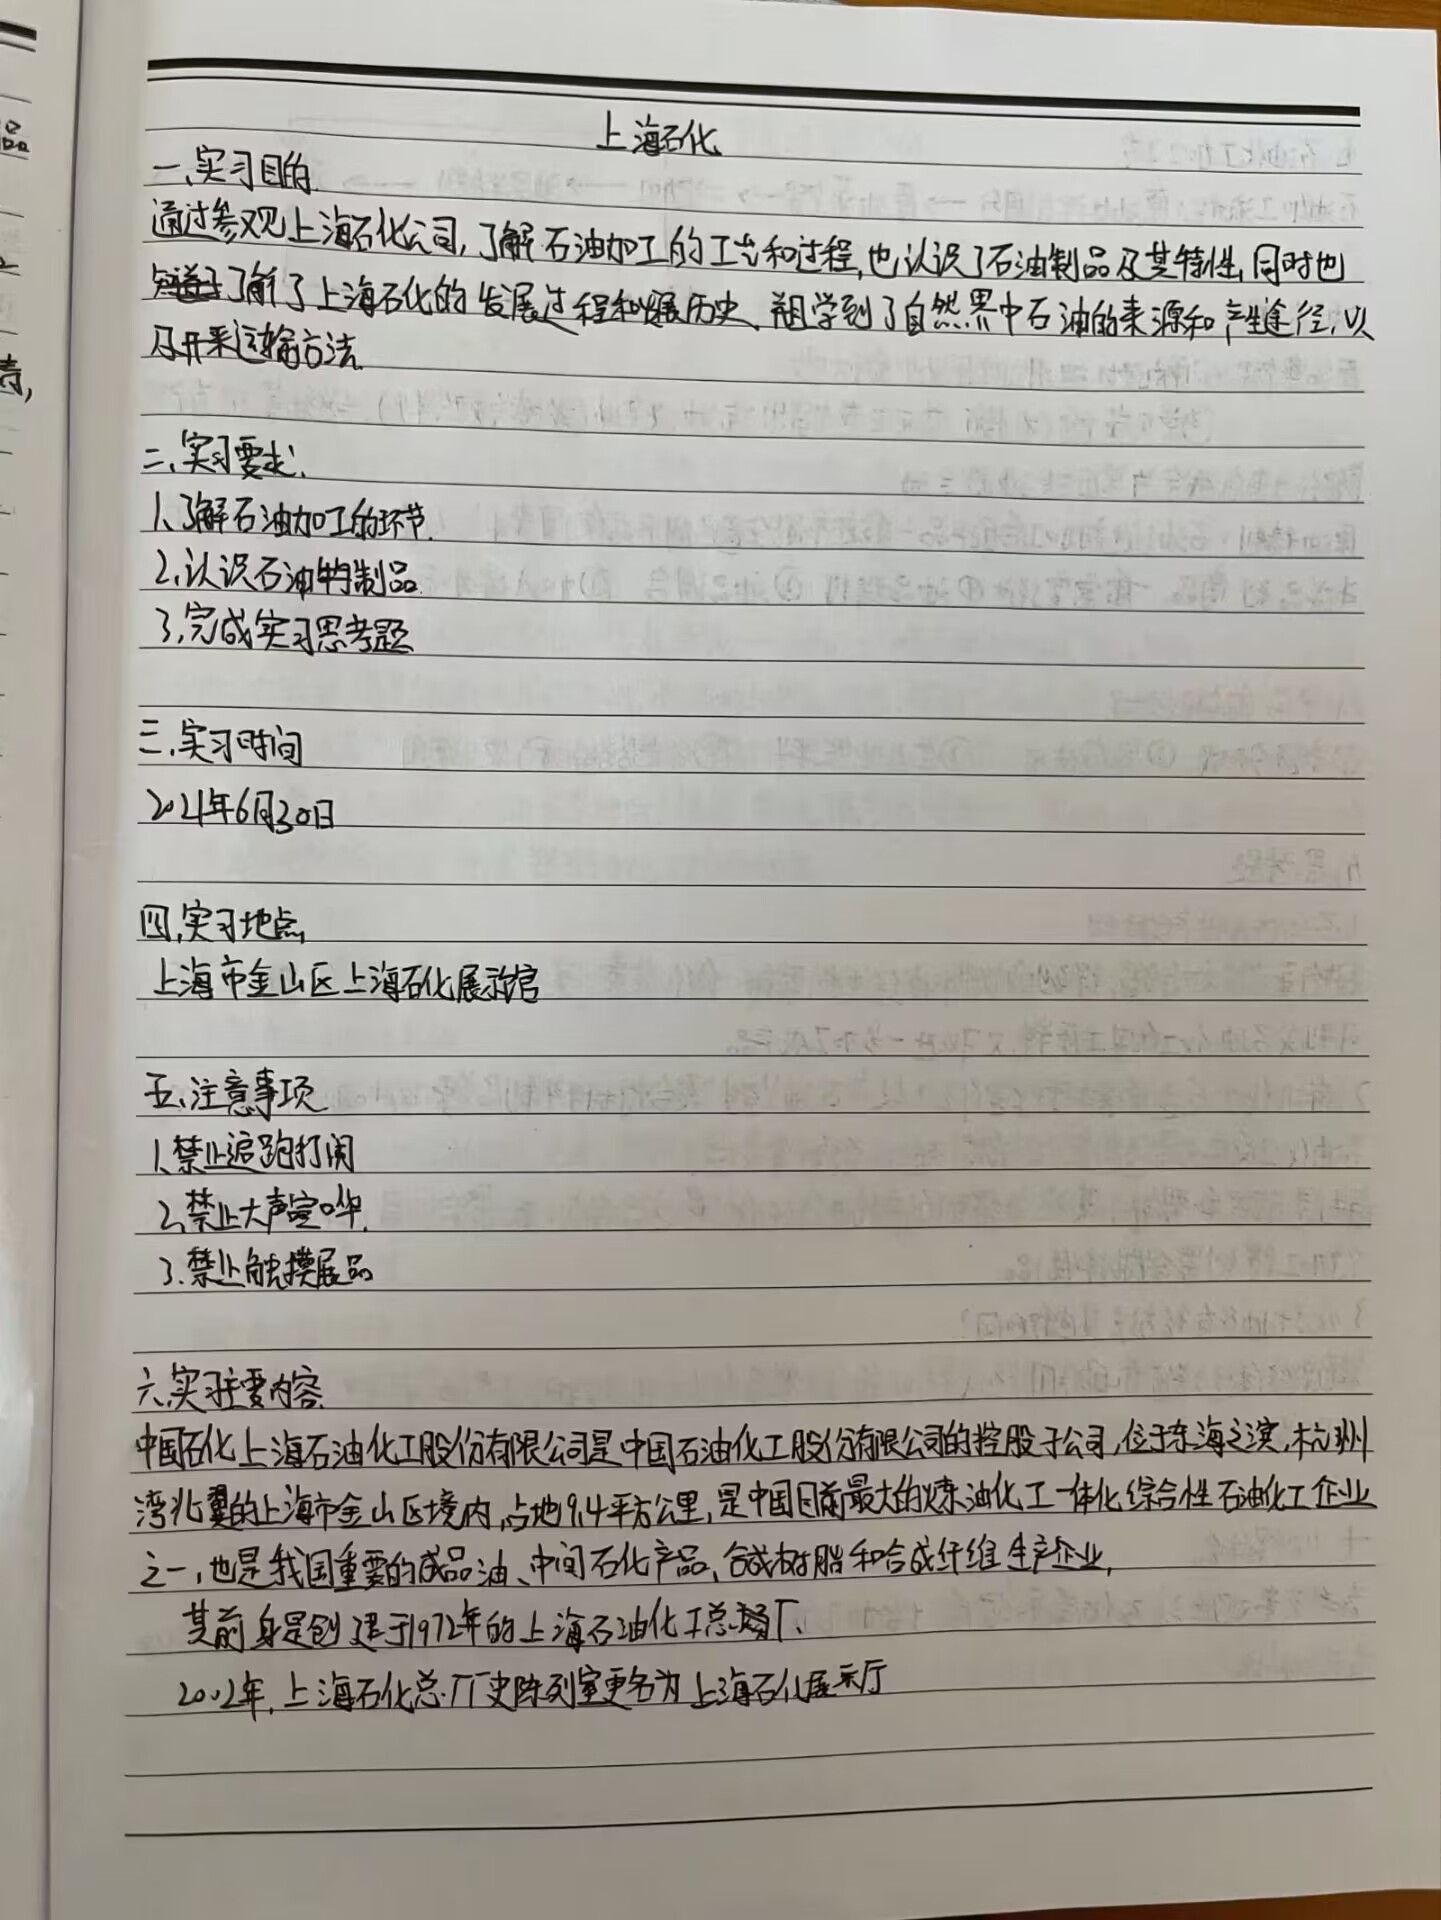 上海石化
一、实习目的
通过参观上海石化公司，了解石油加工的工艺和过程，也认识了石油制品及其特性，同时也
了解了上海石化的发展过程和发展历史、学到了自然界中石油的来源和产生途径，以
及开采运输方法
二、实习要求、
1、了解石油加工的环节
2、认识石油制品
3、完成实习思考题
三、实习时间
2021年6月30日
四、实习地点
上海市金山区上海石化展示馆
五、注意事项
1、禁止追跑打闹
2、禁止大声喧哗
3、禁止触摸展品
六、实习主要内容
中国石化上海石油化工股份有限公司是中国石油化工股份有限公司的控股子公司，位于东海之滨，杭州
湾北翼的上海市金山区境内，占地9.4平方公里，是中国目前最大的炼油化工一体化综合性石油化工企业
之一，也是我国重要的成品油、中间石化产品、合成树脂和合成纤维生产企业，
其前身是创建于1972年的上海石油化工总厂、
2002年，上海石化总厂厂史陈列室更名为上海石化展示厅